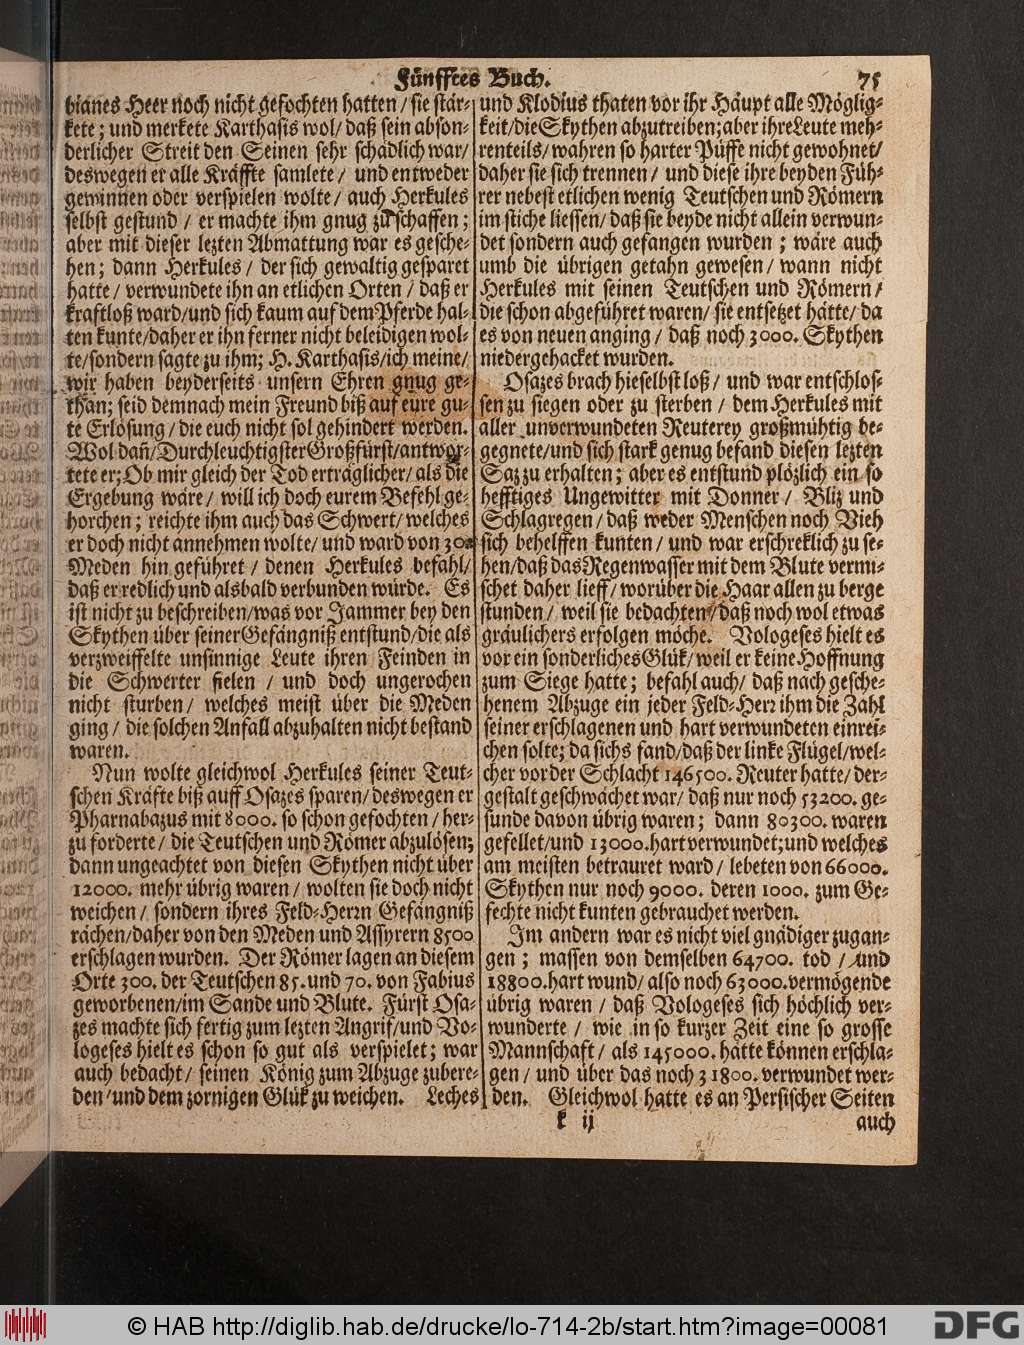 Fünfftes Buch. 75
bianes Heer noch nicht gefochten hatten / sie stär-
kete; und merkete Karthasis wol/ daß sein abson-
derlicher Streit den Seinen sehr schädlich war/
deswegen er alle Kräffte samlete / und entweder
gewinnen oder verspielen wolte / auch Herkules
selbst gestund / er machte ihm gnug zu schaffen;
aber mit dieser lezten Abmattung war es gesche-
hen; dann Herkules / der sich gewaltig gesparet
hatte / verwundete ihn an etlichen Orten / daß er
kraftloß ward/und sich kaum auf dem Pferde hal-
ten kunte/daher er ihn ferner nicht beleidigen wol-
te/sondern sagte zu ihm; H. Karthasis/ich meine/
wir haben beyderseits unsern Ehren gnug ge-
than; seid demnach mein Freund biß auf eure gu-
te Erlösung / die euch nicht sol gehindert werden.
Wol dañ/Durchleuchtigster Großfürst/antwor-
tete er; Ob mir gleich der Tod erträglicher/ als die
Ergebung wäre / will ich doch eurem Befehl ge-
horchen; reichte ihm auch das Schwert/ welches
er doch nicht annehmen wolte/ und ward von 30.
Meden hin geführet / denen Herkules befahl/
daß er redlich und alsbald verbunden würde. Es
ist nicht zu beschreiben/was vor Jammer bey den
Skythen über seiner Gefängniß entstund/die als
verzweiffelte unsinnige Leute ihren Feinden in
die Schwerter fielen / und doch ungerochen
nicht sturben / welches meist über die Meden
ging / die solchen Anfall abzuhalten nicht bestand
waren.
Nun wolte gleichwol Herkules seiner Teut-
schen Kräfte biß auff Osazes sparen/ deswegen er
Pharnabazus mit 8000. so schon gefochten / her-
zu forderte / die Teutschen und Römer abzulösen;
dann ungeachtet von diesen Skythen nicht über
12000. mehr übrig waren / wolten sie doch nicht
weichen / sondern ihres Feld-Herrn Gefängniß
rächen/daher von den Meden und Assyrern 8500
erschlagen wurden. Der Römer lagen an diesem
Orte 300. der Teutschen 85. und 70. von Fabius
geworbenen/im Sande und Blute. Fürst Osa-
zes machte sich fertig zum lezten Angrif/und Vo-
logeses hielt es schon so gut als verspielet; war
auch bedacht/ seinen König zum Abzuge zubere-
den/und dem zornigen Glük zu weichen. Leches
und Klodius thaten vor ihr Häupt alle Möglig-
keit/die Skythen abzutreiben;aber ihre Leute meh-
renteils/ wahren so harter Püffe nicht gewohnet/
daher sie sich trennen / und diese ihre beyden Füh-
rer nebest etlichen wenig Teutschen und Römern
im stiche liessen/ daß sie beyde nicht allein verwun-
det sondern auch gefangen wurden ; wäre auch
umb die übrigen getahn gewesen / wann nicht
Herkules mit seinen Teutschen und Römern /
die schon abgeführet waren/ sie entsetzet hätte/ da
es von neuen anging / daß noch 3000. Skythen
niedergehacket wurden.
Osazes brach hieselbst loß / und war entschlos-
sen zu siegen oder zu sterben / dem Herkules mit
aller unverwundeten Reuterey großmühtig be-
gegnete/und sich stark genug befand diesen lezten
Saz zu erhalten; aber es entstund plözlich ein so
hefftiges Ungewitter mit Donner / Bliz und
Schlagregen / daß weder Menschen noch Vieh
sich behelffen kunten / und war erschreklich zu se-
hen/daß das Regenwasser mit dem Blute vermi-
schet daher lieff/ worüber die Haar allen zu berge
stunden / weil sie bedachten/daß noch wol etwas
gräulichers erfolgen möche. Vologeses hielt es
vor ein sonderliches Glük/ weil er keine Hoffnung
zum Siege hatte; befahl auch/ daß nach gesche-
henem Abzuge ein jeder Feld-Herr ihm die Zahl
seiner erschlagenen und hart verwundeten einrei-
chen solte; da sichs fand/daß der linke Flügel/wel-
cher vor der Schlacht 146500. Reuter hatte/ der-
gestalt geschwächet war/ daß nur noch 53200. ge-
sunde davon übrig waren; dann 80300. waren
gefellet/und 13000. hart verwundet;und welches
am meisten betrauret ward / lebeten von 66000.
Skythen nur noch 9000. deren 1000. zum Ge-
fechte nicht kunten gebrauchet werden.
Im andern war es nicht viel gnädiger zugan-
gen ; massen von demselben 64700. tod / und
18800. hart wund/ also noch 63000. vermögende
übrig waren / daß Vologeses sich höchlich ver-
wunderte / wie in so kurzer Zeit eine so grosse
Mannschaft / als 145000. hätte können erschla-
gen / und über das noch 31800. verwundet wer-
den. Gleichwol hatte es an Persischer Seiten
k ij auch
© HAB http://diglib.hab.de/drucke/lo-714-2b/start.htm?image=00081
DFG